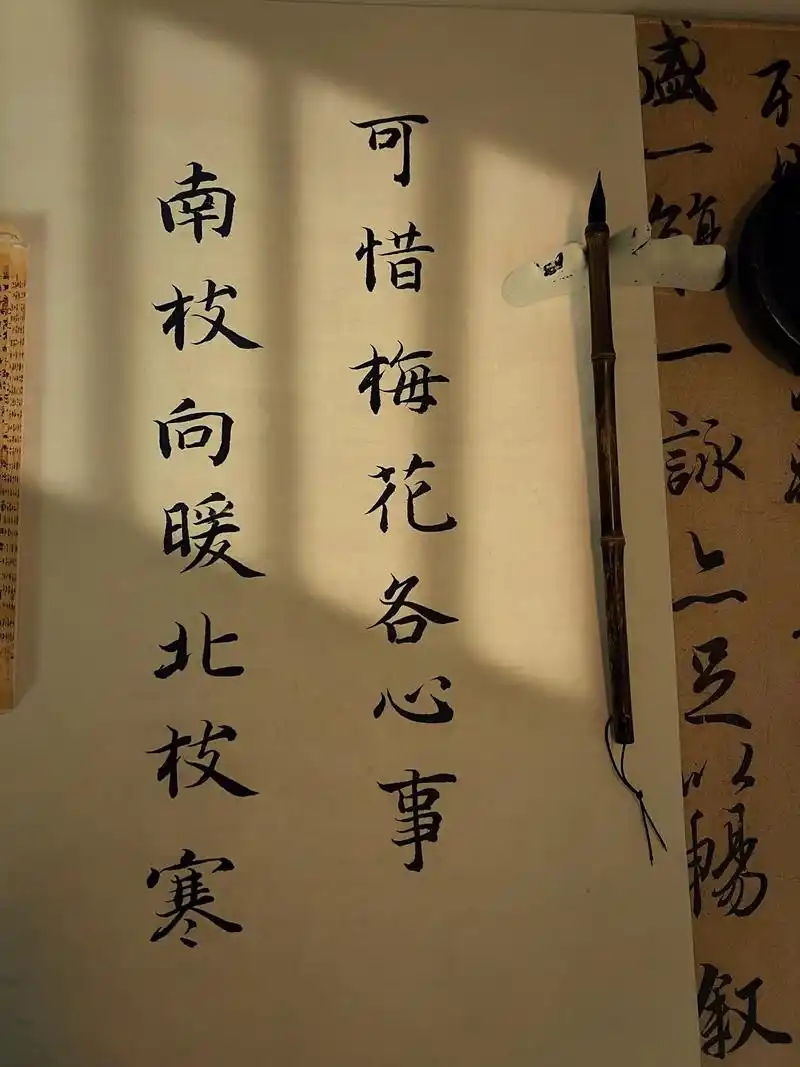 盛一觴一詠亦足以暢叙
可惜梅花各心事
南枝向暖北枝寒